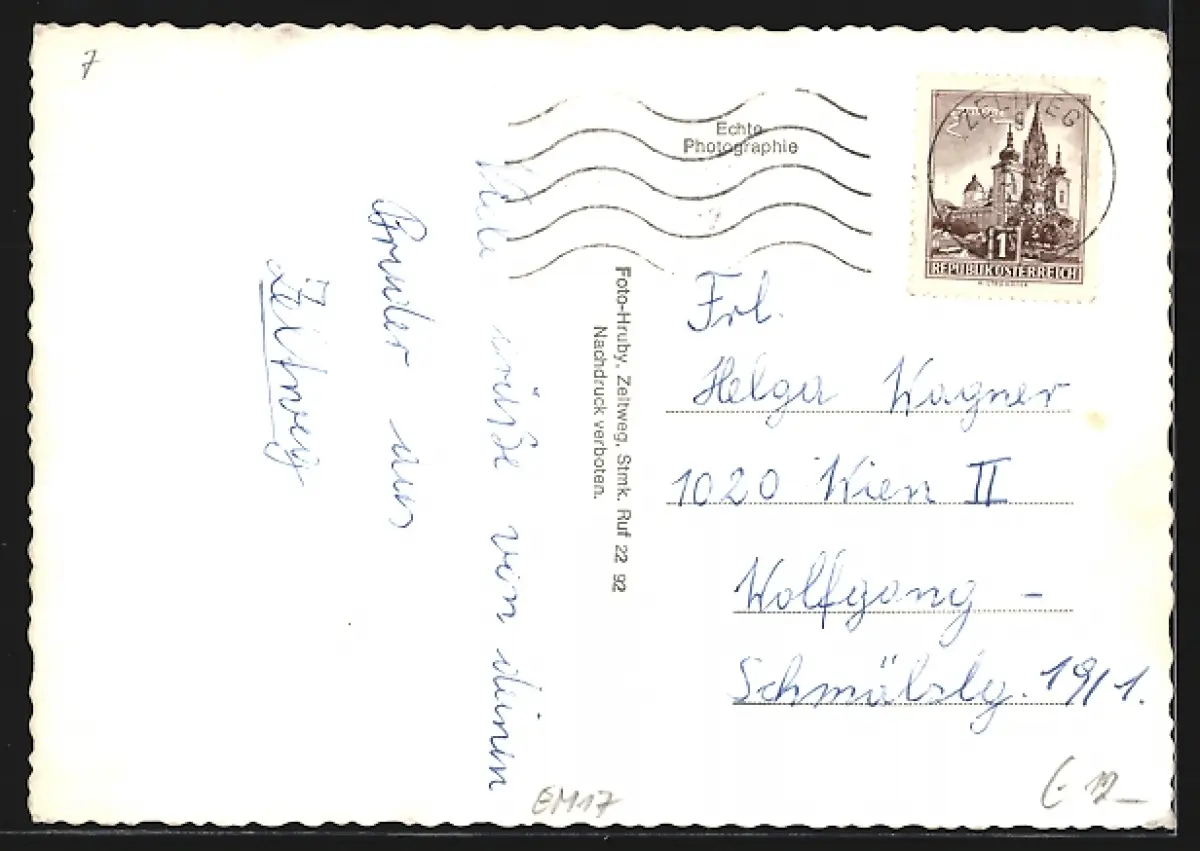 7
Echte
Photographie
ZELTWEG
1S
REPUBLIK ÖSTERREICH
Viele Grüße von deinen
Bruder aus
Zeltweg
Foto-Hruby, Zeltweg, Stmk. Ruf 22 92
Nachdruck verboten.
Frl.
Helga Wagner
1020 Wien II
Wolfgang -
Schmälzlg. 19/1.
EM17